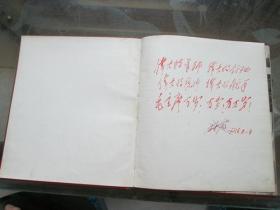 伟大的导师 伟大的领袖
伟大的统帅 伟大的舵手
毛主席万岁！万岁！万万岁！
林彪